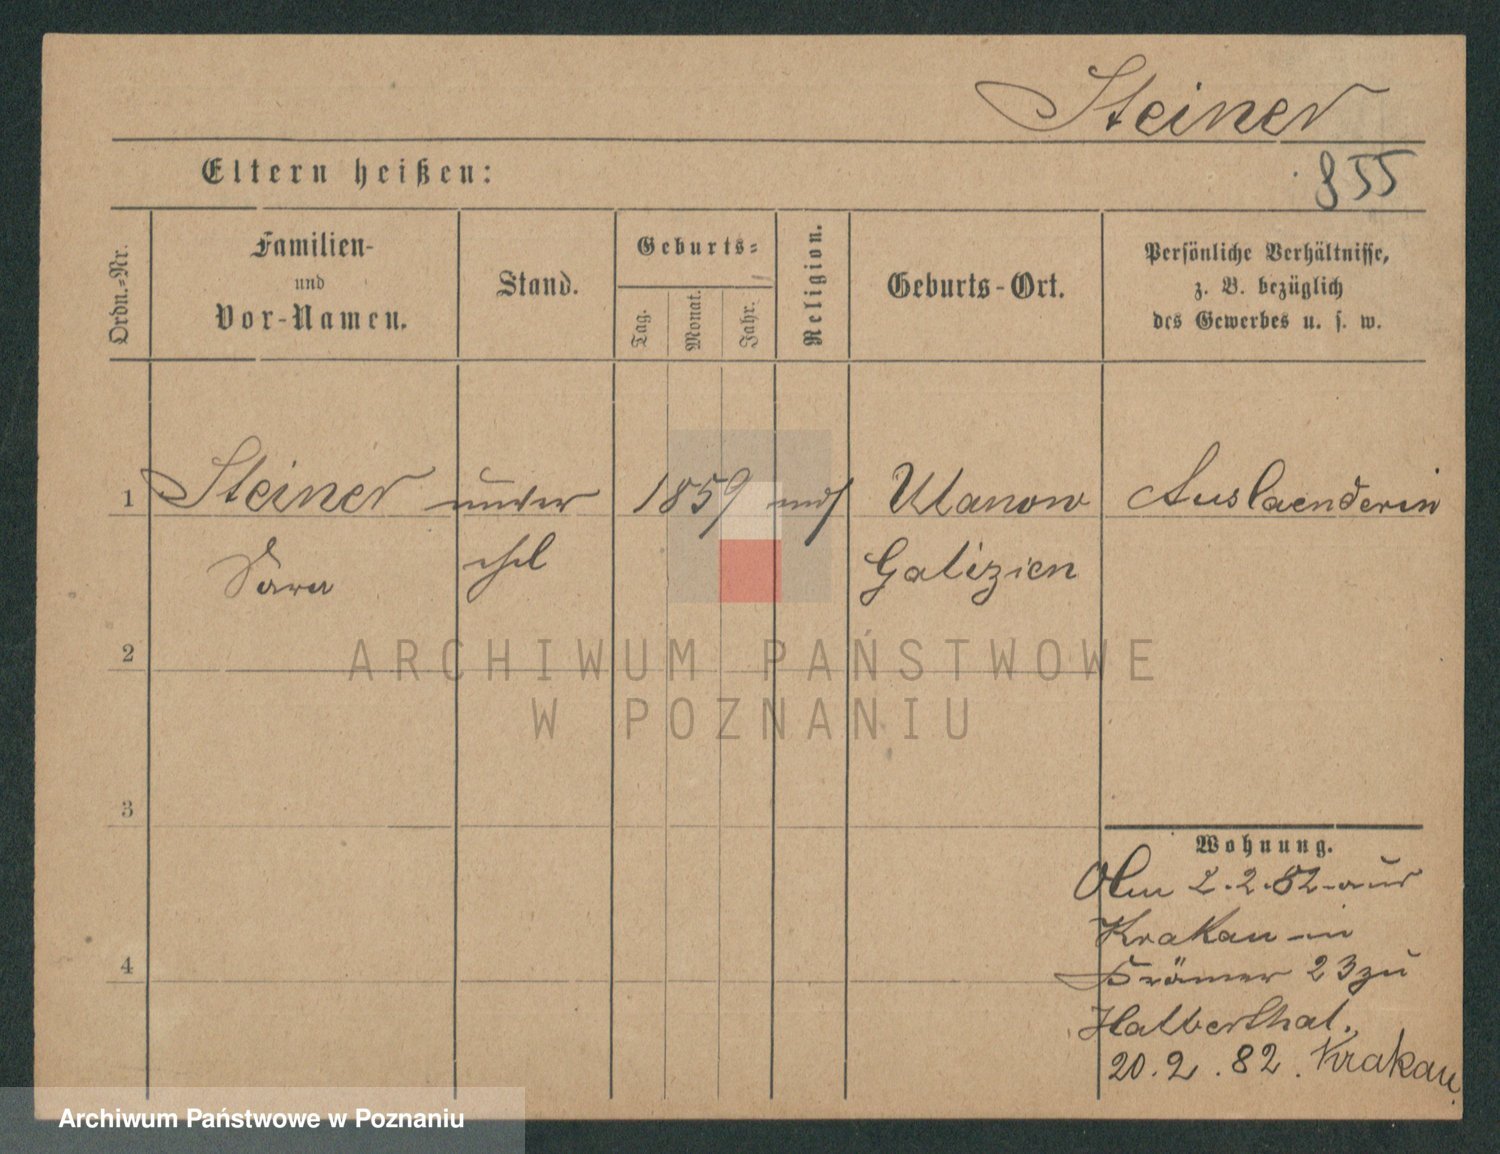 Steiner
855
Eltern heißen:
Ordn.-Nr.
Familien-
und
Vor-Namen.
Stand.
Geburts-
Tag.
Monat.
Jahr.
Religion.
Geburts-Ort.
Persönliche Verhältnisse,
z. B. bezüglich
des Gewerbes u. s. w.
1 Steiner 1859 Ulanow Auslaenderin
Sara Galizien
2
ARCHIWUM PAŃSTWOWE
W POZNANIU
3
Wohnung.
2.2.82 aus
Krakau in
4
Krämer 23 zu
Halberthal.
20.2.82. Krakau.
Archiwum Państwowe w Poznaniu